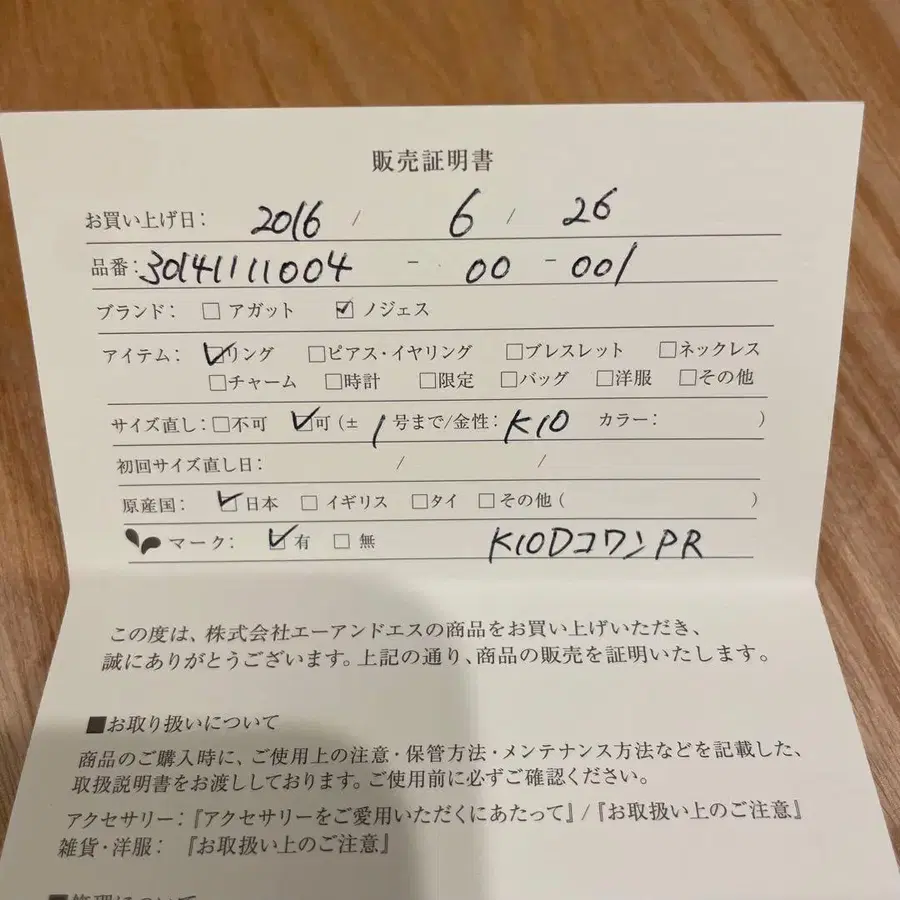 販売証明書
お買い上げ日： 2016 / 6 / 26
品番：30141111004 - 00 - 001
ブランド： □ アガット ☑ ノジェス
アイテム： ☑リング □ピアス・イヤリング □ブレスレット □ネックレス
□チャーム □時計 □限定 □バッグ □洋服 □その他
サイズ直し：□不可 ☑可（± 1 号まで/金性： K10 カラー： ）
初回サイズ直し日： / /
原産国： ☑日本 □ イギリス □タイ □その他（ ）
マーク： ☑ 有 □ 無 K10DコワンPR
この度は、株式会社エーアンドエスの商品をお買い上げいただき、
誠にありがとうございます。上記の通り、商品の販売を証明いたします。
■お取り扱いについて
商品のご購入時に、ご使用上の注意・保管方法・メンテナンス方法などを記載した、
取扱説明書をお渡ししております。ご使用前に必ずご確認ください。
アクセサリー：『アクセサリーをご愛用いただくにあたって』/『お取扱い上のご注意』
雑貨・洋服： 『お取扱い上のご注意』